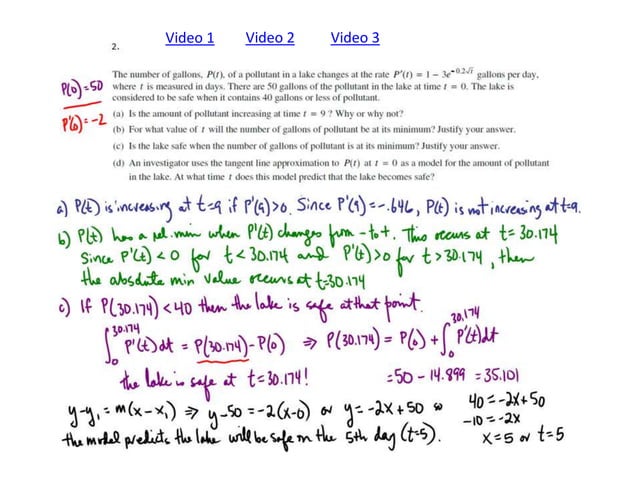 Video 1 Video 2 Video 3
2.
The number of gallons, P(t), of a pollutant in a lake changes at the rate P'(t) = 1 − 3e^(−0.2√t) gallons per day,
where t is measured in days. There are 50 gallons of the pollutant in the lake at time t = 0. The lake is
considered to be safe when it contains 40 gallons or less of pollutant.
P(0)=50
P'(0)=-2
(a) Is the amount of pollutant increasing at time t = 9 ? Why or why not?
(b) For what value of t will the number of gallons of pollutant be at its minimum? Justify your answer.
(c) Is the lake safe when the number of gallons of pollutant is at its minimum? Justify your answer.
(d) An investigator uses the tangent line approximation to P(t) at t = 0 as a model for the amount of pollutant
in the lake. At what time t does this model predict that the lake becomes safe?
a) P(t) is increasing at t=9 if P'(9)>0. Since P'(9)=-.646, P(t) is not increasing at t=9.
b) P(t) has a rel. min when P'(t) changes from - to +. This occurs at t= 30.174
Since P'(t) < 0 for t < 30.174 and P'(t) > 0 for t > 30.174, then
the absolute min value occurs at t=30.174
c) If P(30.174) < 40 then the lake is safe at that point.
∫₀^30.174 P'(t)dt = P(30.174)-P(0) ⇒ P(30.174) = P(0) + ∫₀^30.174 P'(t)dt
the lake is safe at t=30.174! =50 - 14.899 = 35.101
y-y₁=m(x-x₁) ⇒ y-50=-2(x-0) or y=-2x+50 so 40=-2x+50
-10=-2x
the model predicts the lake will be safe on the 5th day (t=5). x=5 or t=5